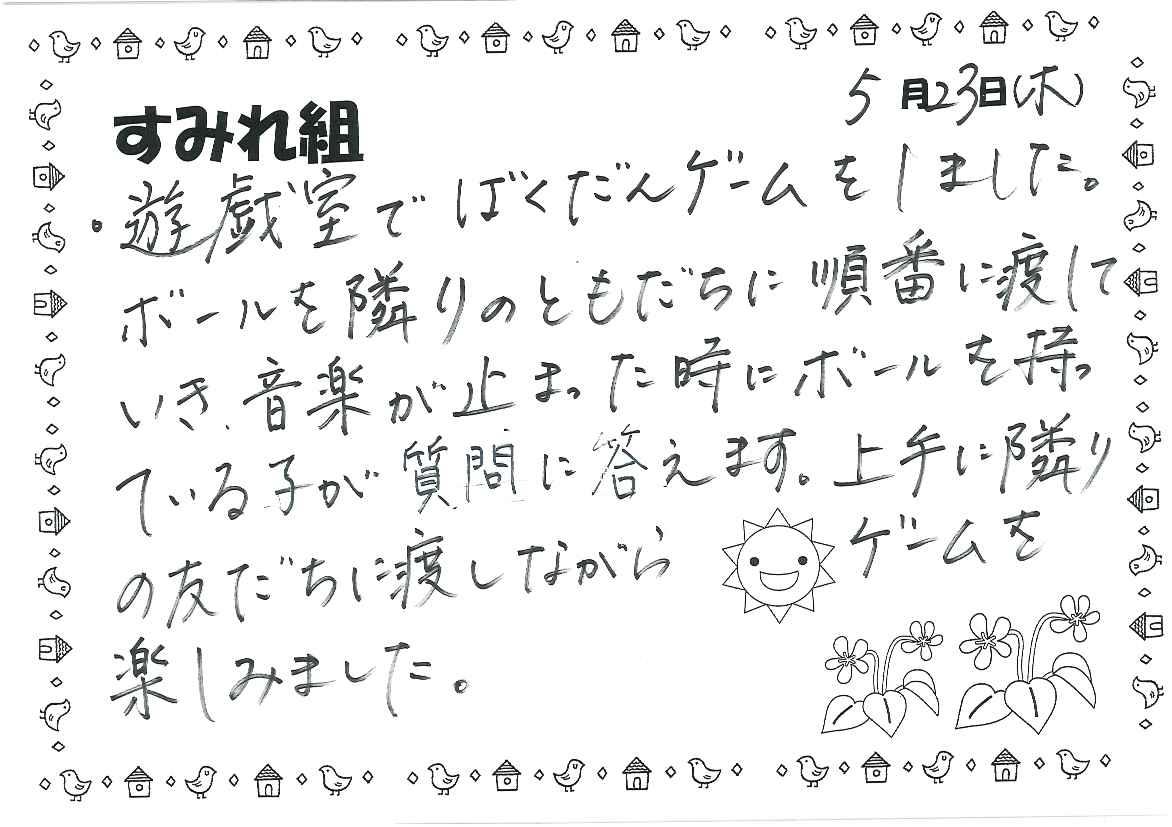 5月23日(木)
すみれ組
・遊戯室でばくだんゲームをしました。
ボールを隣りのともだちに順番に渡して
いき、音楽が止まった時にボールを持っ
ている子が質問に答えます。上手に隣り
の友だちに渡しながら ゲームを
楽しみました。